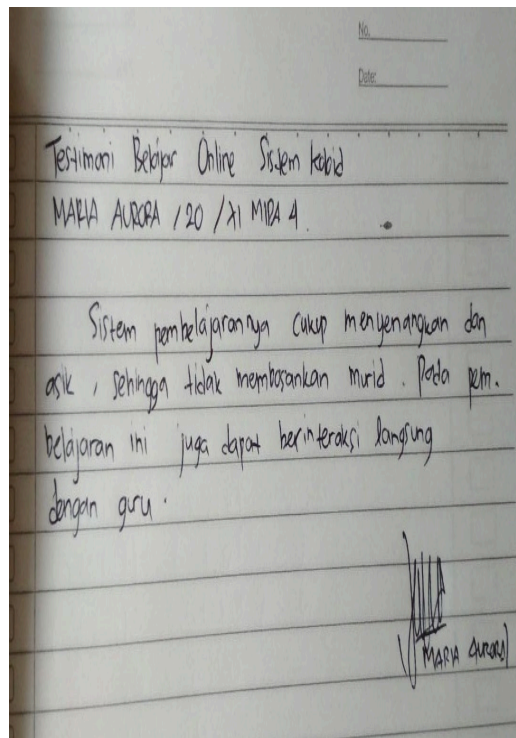 No.
Date:
Testimoni Belajar Online Sistem kobid
MARIA AURORA / 20 / XI MIPA 4.
Sistem pembelajarannya cukup menyenangkan dan
asik, sehingga tidak membosankan murid. Pada pem-
belajaran ini juga dapat berinteraksi langsung
dengan guru.
MARIA AURORA